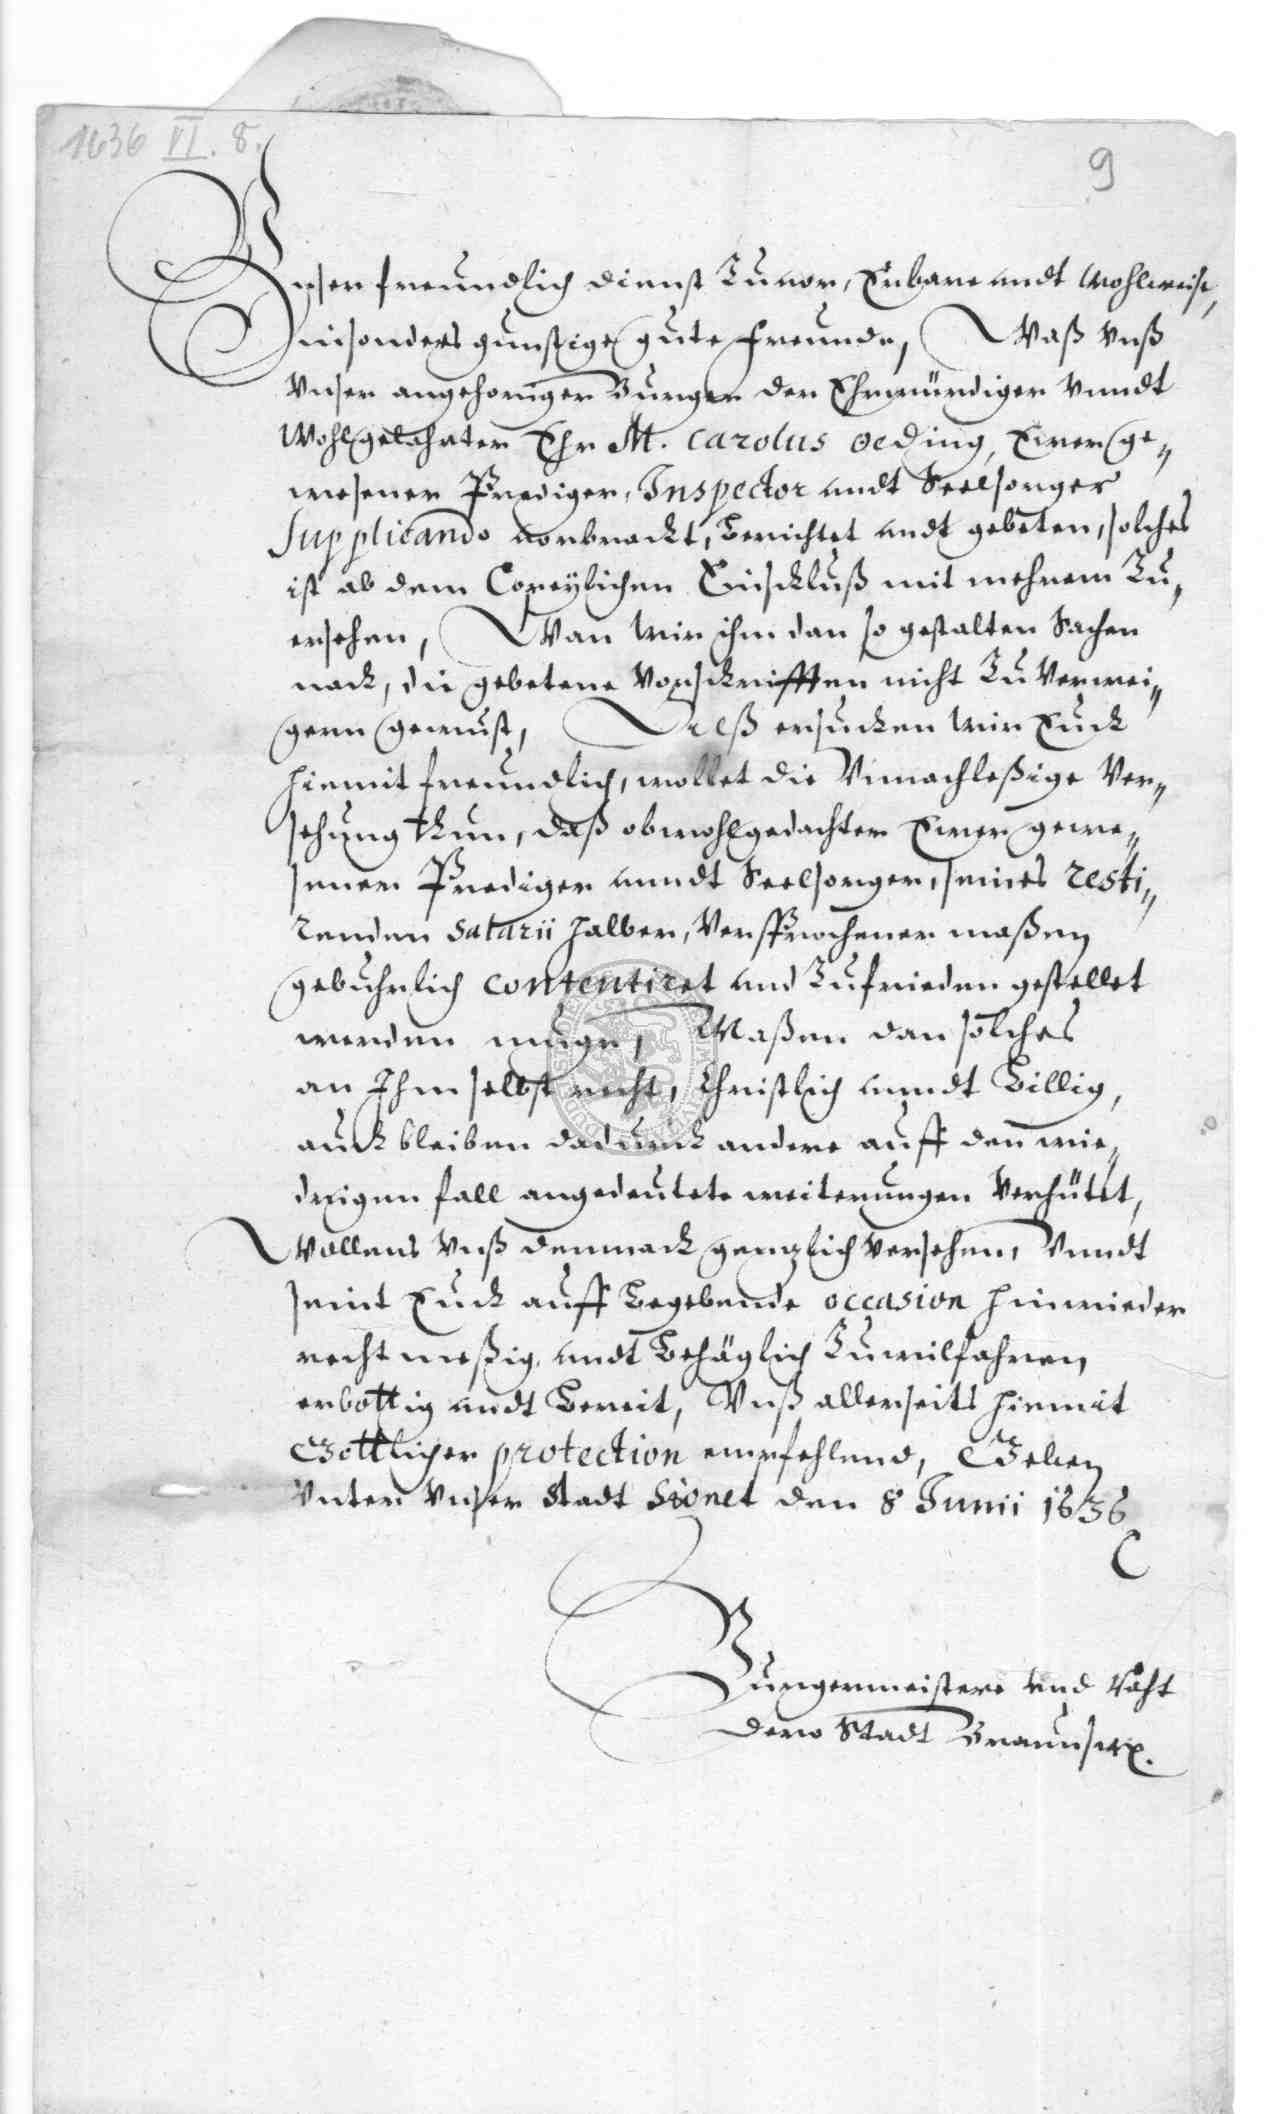 1636 VI. 8.
9
Vnser freundlich dienst Zuuor, Erbare undt Wohlweise,
insonders gunstige gute Freunde, Waß Vnß
Vnser angehoriger Burger der Ehrwürdiger Vnndt
Wohlgelahrter Ehr M. Carolus Oeding, Ewer ge„
wesener Prediger, Inspector undt Seelsorger
Supplicando vorbracht, Berichtet undt gebeten, solches
ist ab dem Copeylichen Einschluß mit mehrem Zu„
ersehen, Wan Wir ihm dan so gestalten Sachen
nach, die gebetene Vorschrifften nicht Zu Verwei„
gern gewust, Alß ersuchen Wir Euch
hiemit freundlich, wollet die Vnnachleßige Ver„
sehung thun, daß obwohlgedachter Ewer gewe„
sener Prediger unndt Seelsorger, seines resti„
renden Salarii halber, Versprochener maßen
gebuhrlich contentiret und Zufrieden gestellet
werden muge, Maßen dan solches
an Ihm selbst recht, Christlich unndt Billig,
auch bleiben dadurch andere auff den wie„
drigen fall angedeutete weiterungen Verhütet,
Wollens Vnß demnach genzlich Versehen, Vnndt
seint Euch auff Begebende occasion hinwieder
recht meßig, undt Behäglich Zuwilfahren,
erbottig undt Bereit, Vnß allerseits hiemit
Gottlicher protection empfehlend, Geben
Vnter Vnser Stadt Signet den 8 Junii 1636
Burgermeistere und Raht
dero Stadt Braunschw.